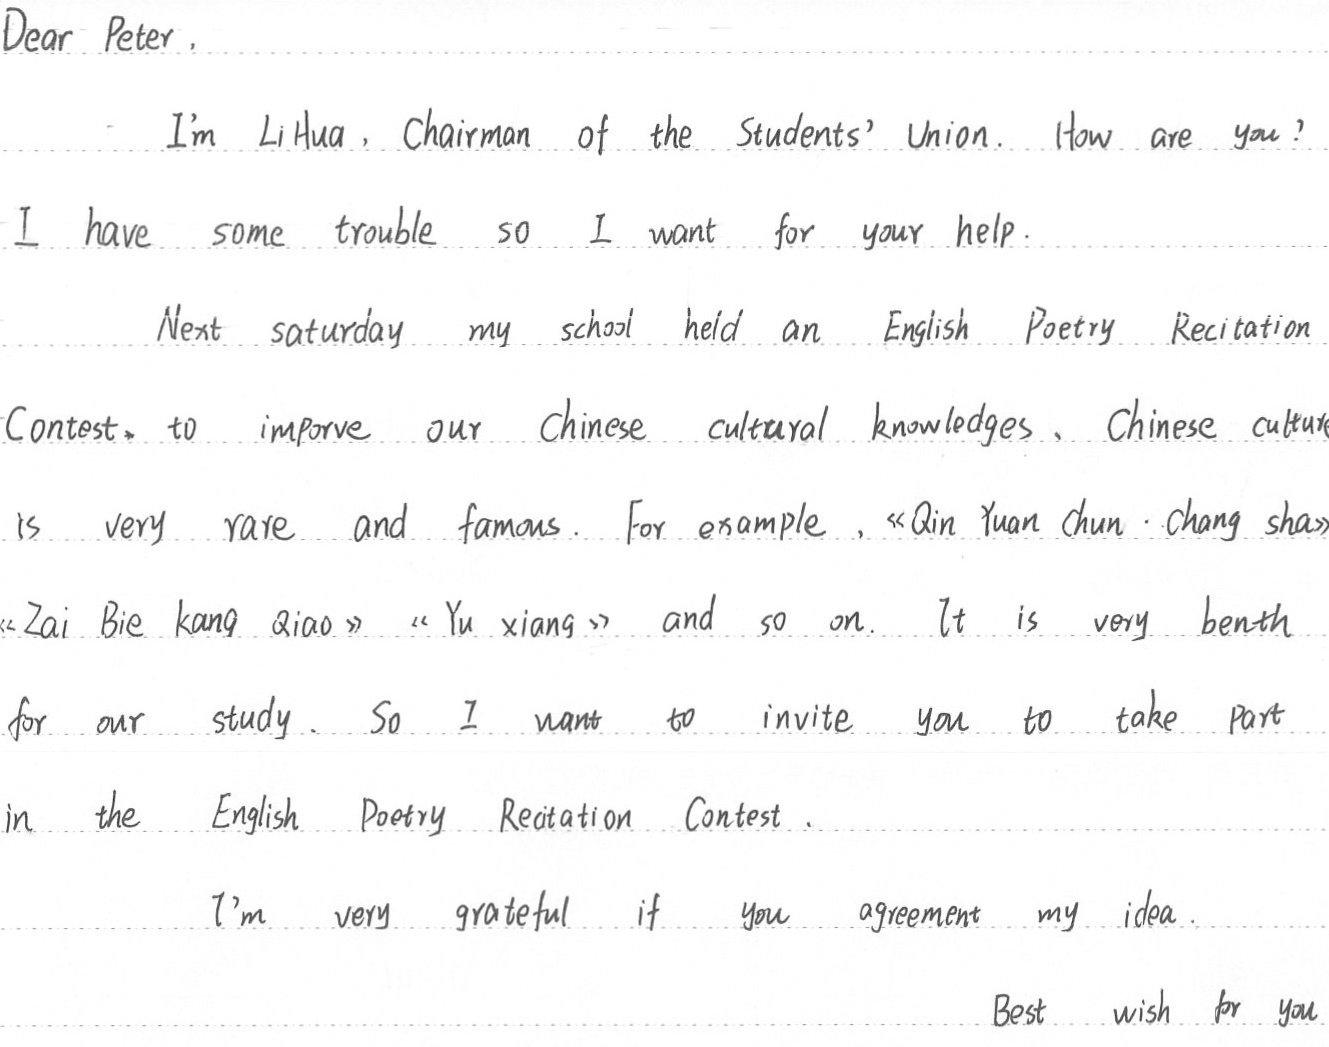 Dear Peter,
I'm Li Hua, Chairman of the Students' Union. How are you?
I have some trouble so I want for your help.
Next saturday my school held an English Poetry Recitation
Contest, to imporve our Chinese cultural knowledges, Chinese culture
is very rare and famous. For example, 《Qin Yuan Chun · Chang sha》
《Zai Bie kang Qiao》 《Yu xiang》 and so on. It is very benth
for our study. So I want to invite you to take part
in the English Poetry Recitation Contest.
I'm very grateful if you agreement my idea.
Best wish for you